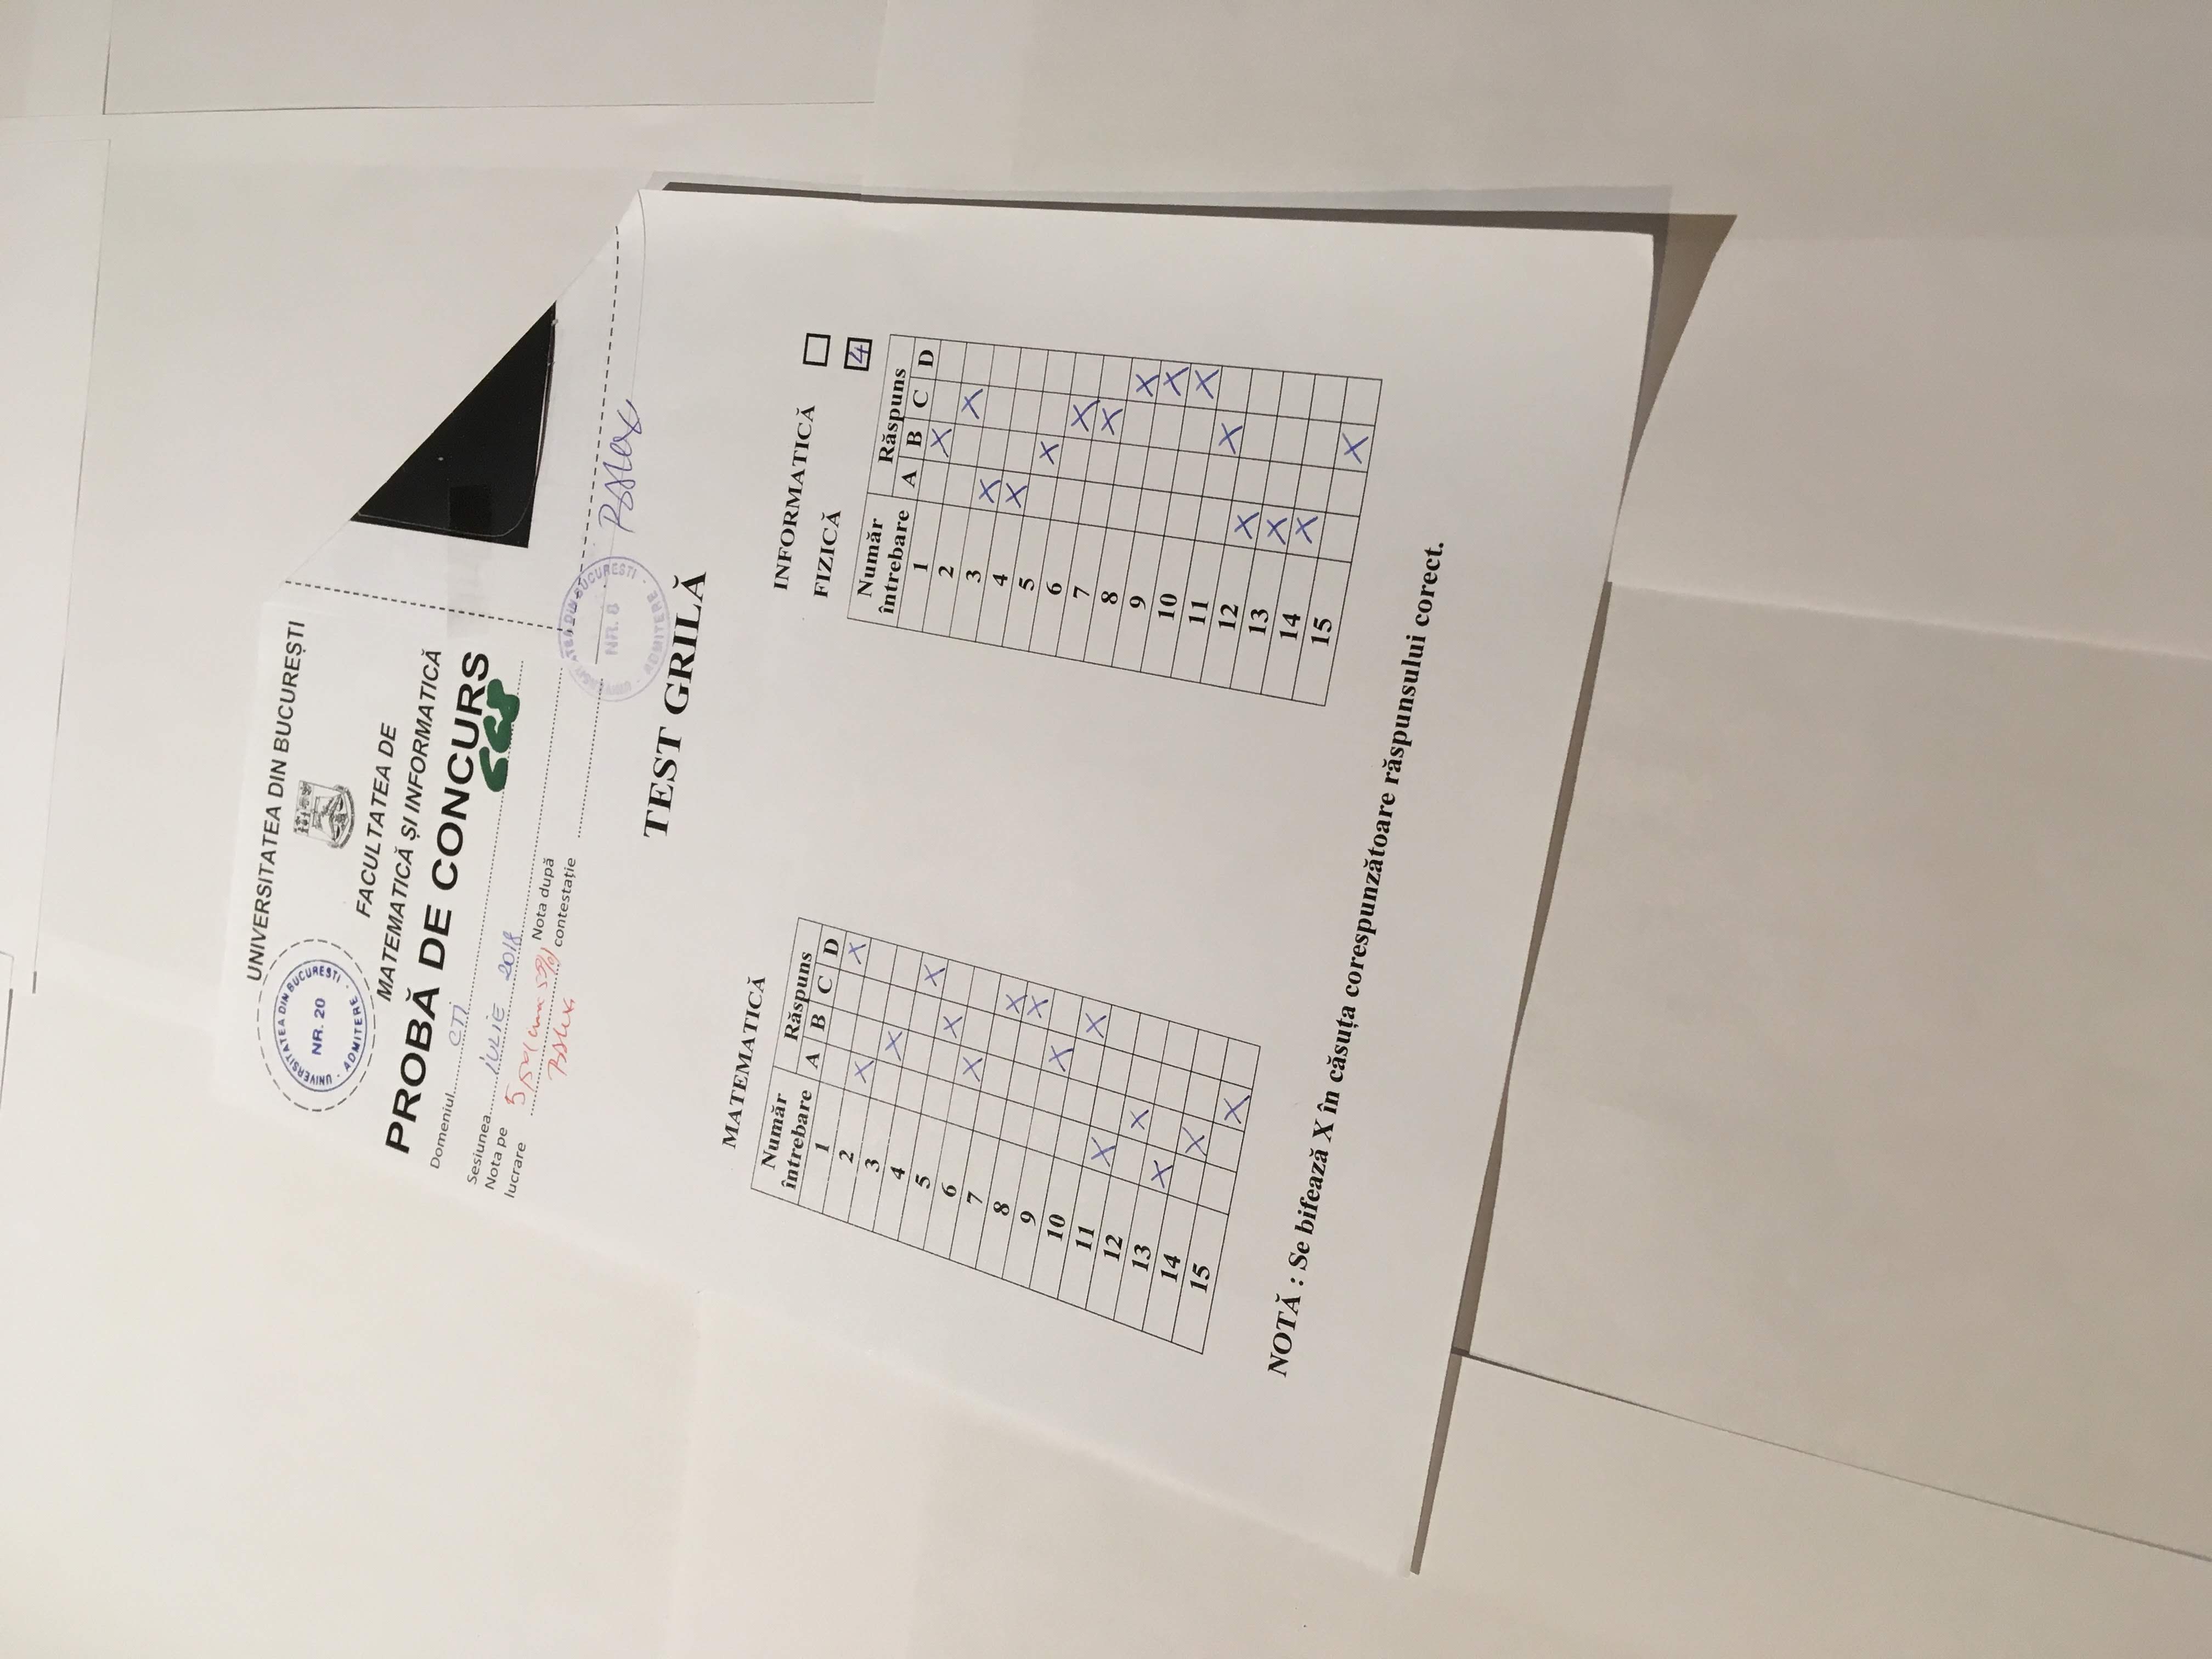 UNIVERSITATEA DIN BUCUREȘTI
UNIVERSITATEA DIN BUCURESTI
NR. 20
ADMITERE
FACULTATEA DE
MATEMATICĂ ȘI INFORMATICĂ
PROBĂ DE CONCURS
Domeniul CTI
668
Sesiunea IULIE 2018
Nota pe
lucrare
Nota după
contestație
NR. 8
ADMITERE
TEST GRILĂ
MATEMATICĂ
Număr
întrebare
Răspuns
A B C D
1 X
2 X
3 X
4 X
5 X
6 X
7 X
8 X
9 X
10 X
11 X
12 X
13 X
14 X
15 X
INFORMATICĂ
FIZICĂ 4
Număr
întrebare
Răspuns
A B C D
1 X
2 X
3 X
4 X
5 X
6 X
7 X
8 X
9 X
10 X
11 X
12 X
13 X
14 X
15 X
NOTĂ : Se bifează X în căsuța corespunzătoare răspunsului corect.